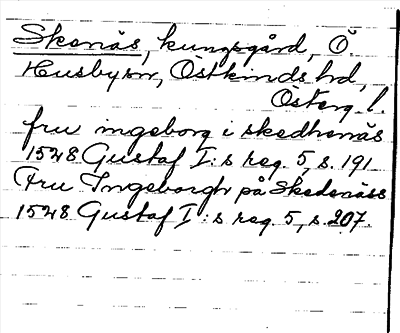 Skenäs, kungsgård, Ö.
Husby sn, Östkinds hd,
Österg. l.
fru ingeborg i skedhenäs
1528 Gustaf I:s reg. 5, s. 191
Fru Ingeborgh på Skedenäss
1528 Gustaf I:s reg. 5, s. 207.